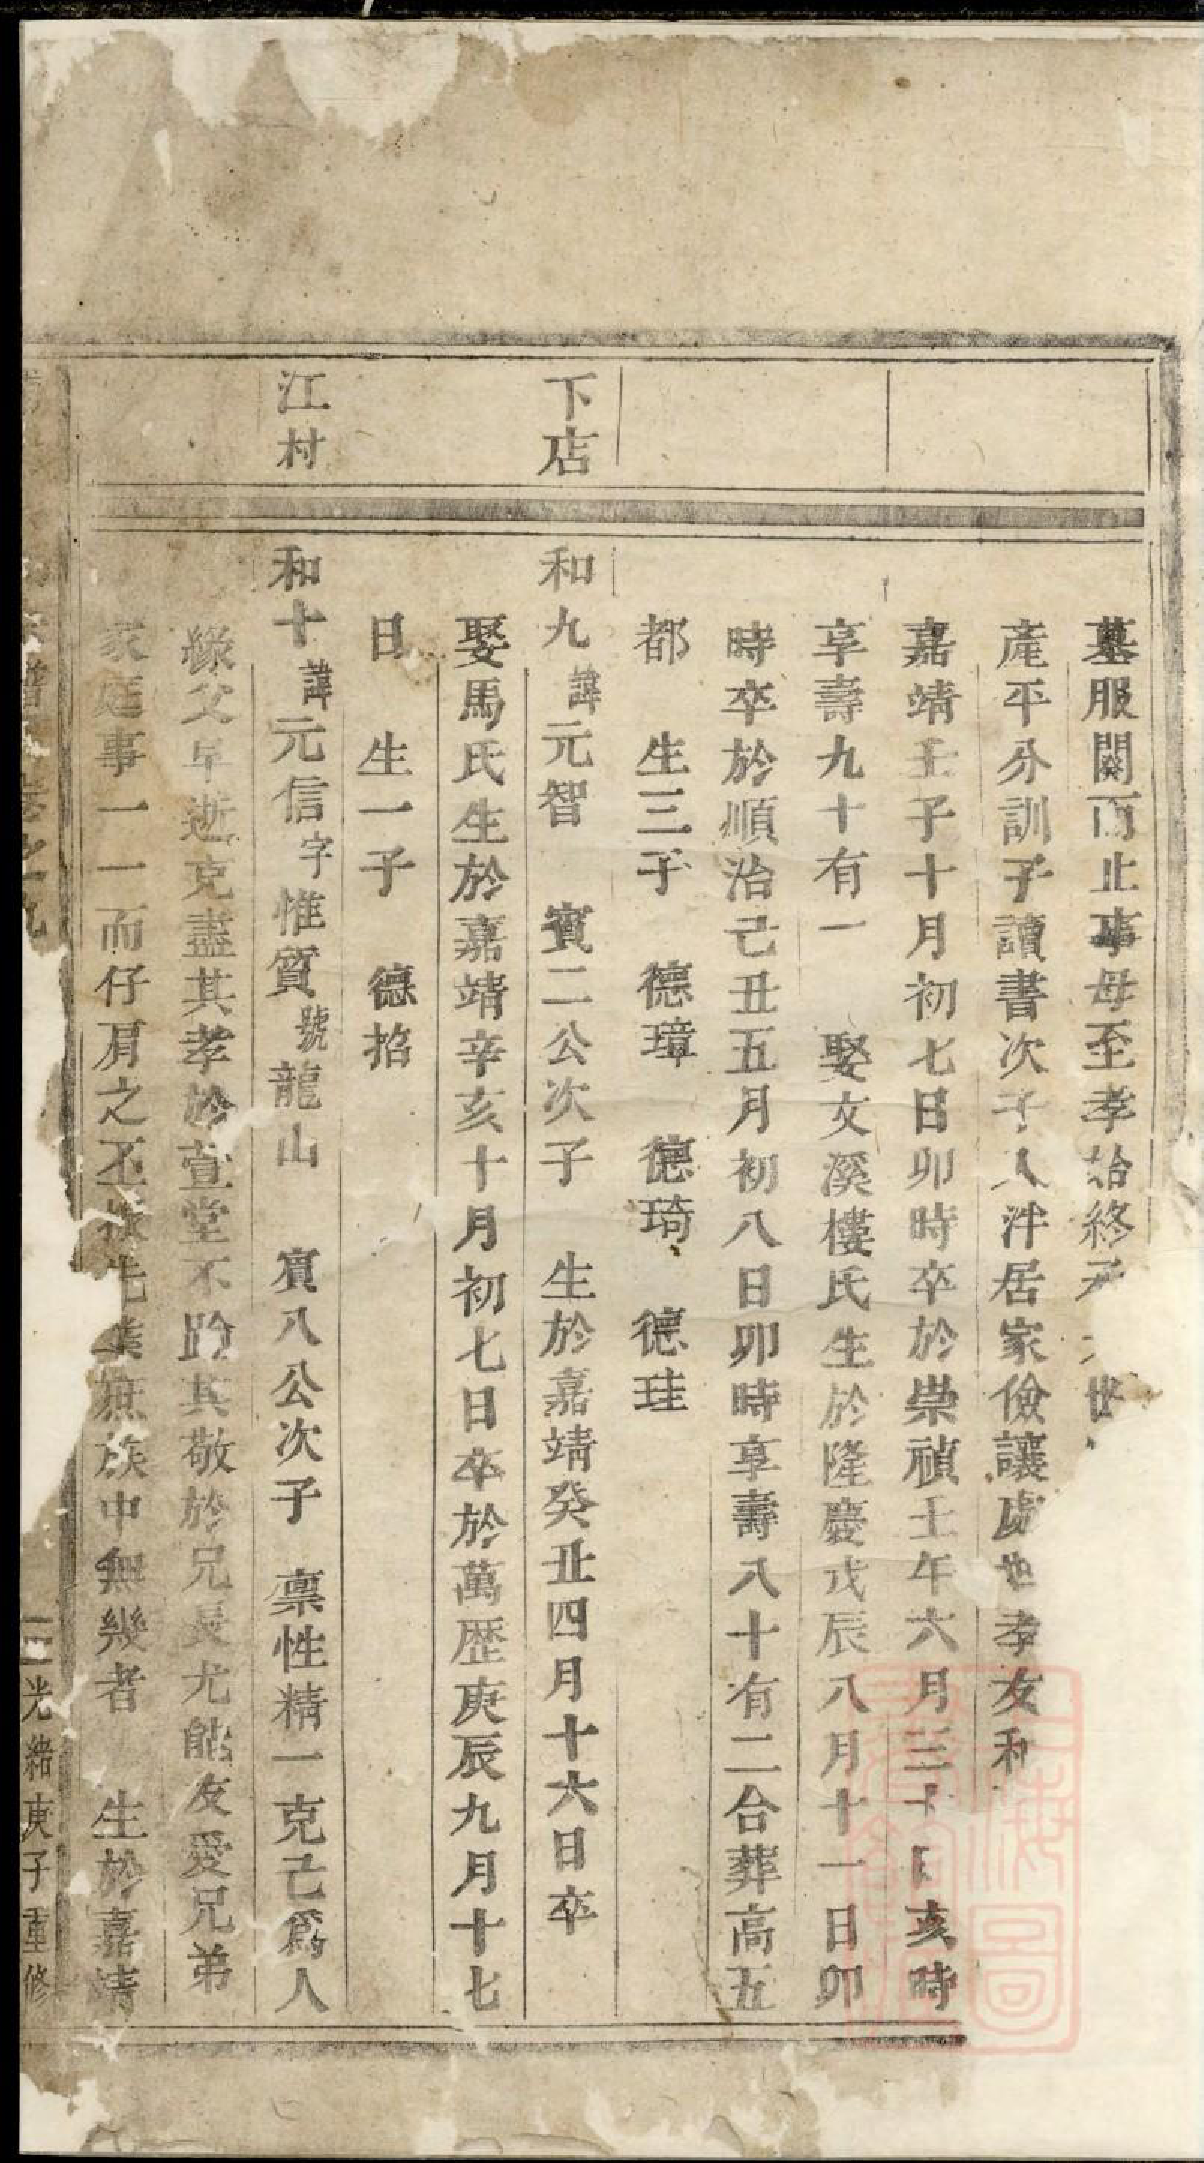 墓服闋而止事母至孝始終
產平分訓子讀書次子入泮居家儉讓處世孝友和
嘉靖壬子十月初七日卯時卒於崇禎壬午六月三十日亥時
享壽九十有一 娶文溪樓氏生於隆慶戊辰八月十一日卯
時卒於順治己丑五月初八日卯時享壽八十有二合葬高五
都 生三子 德璋 德琦 德珪
下店
和九諱元智 賓二公次子 生於嘉靖癸丑四月十六日卒
娶馬氏生於嘉靖辛亥十月初七日卒於萬歷庚辰九月十七
日 生一子 德招
江村
和十諱元信字惟質號龍山 賓八公次子 禀性精一克己爲人
緣父早逝克盡其孝於萱堂不跲其敬於兄長尤能友愛兄弟
家庭事一一而仔肩之丕振先業庶族中無幾者 生於嘉靖
譜 卷之九 光緒庚子重修
上海圖書館藏